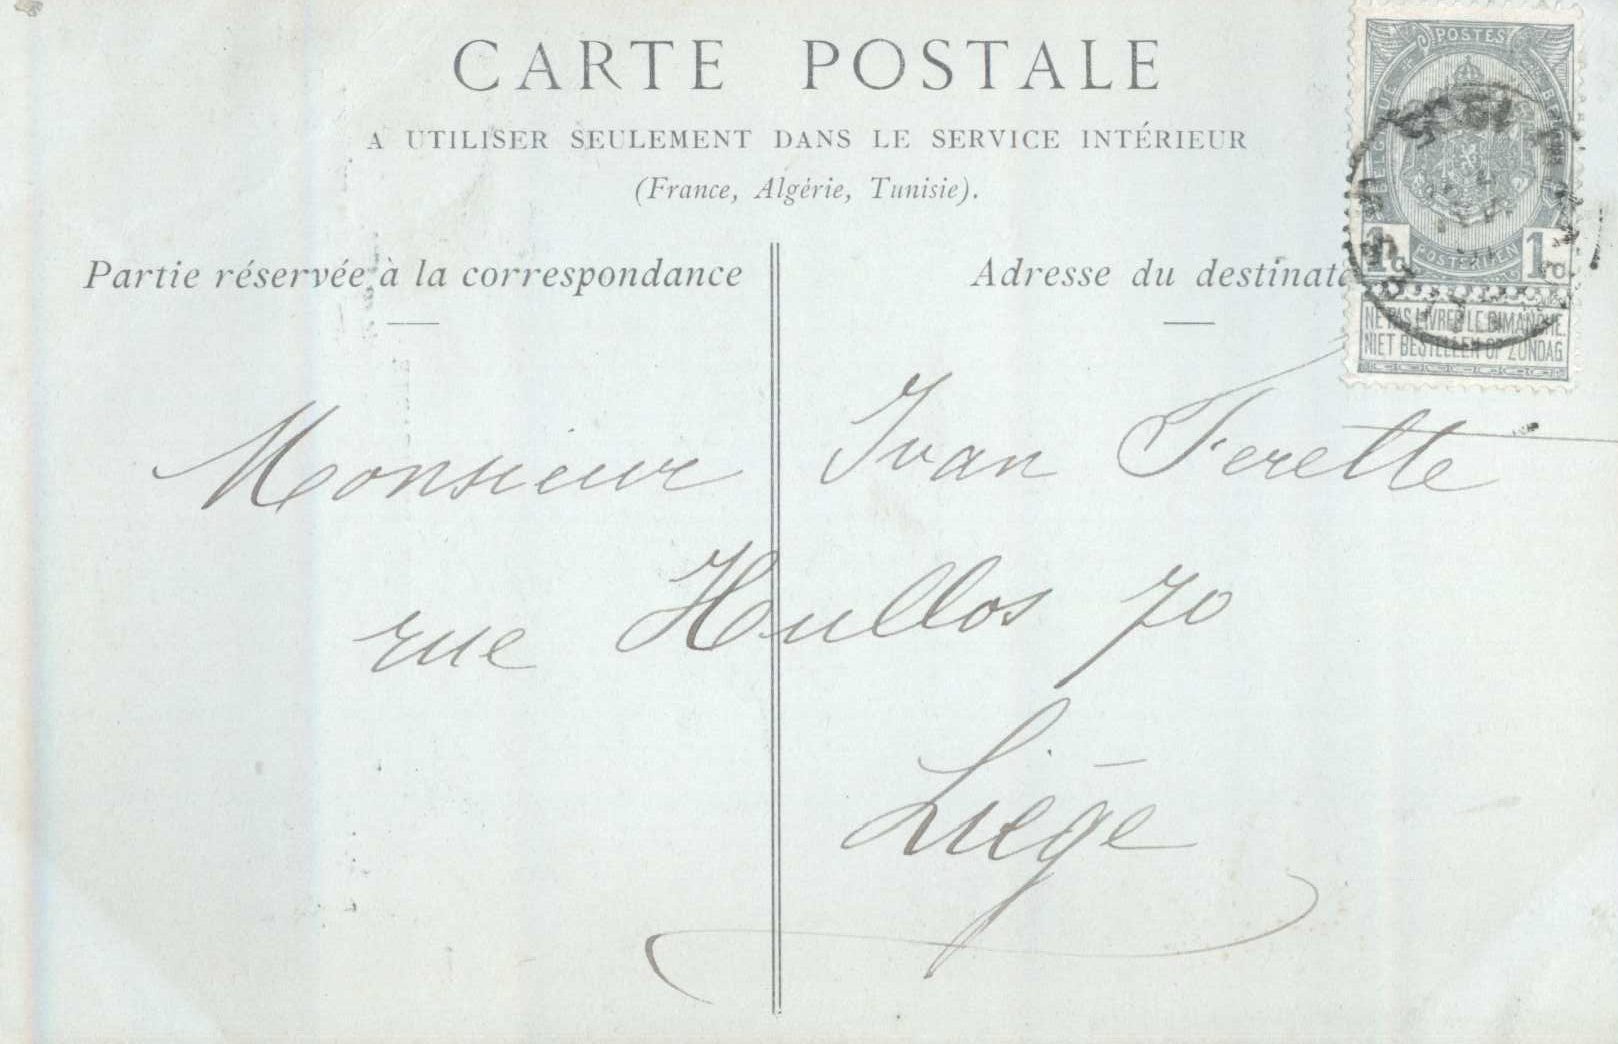 CARTE POSTALE
A UTILISER SEULEMENT DANS LE SERVICE INTÉRIEUR
(France, Algérie, Tunisie).
Partie réservée à la correspondance
Adresse du destinat
POSTES
BELGIQUE
POSTERIJEN
1c 1c
NE PAS LIVRER LE DIMANCHE.
NIET BESTELLEN OP ZONDAG
Monsieur Ivan Ferette
rue Hullos 70
Liége